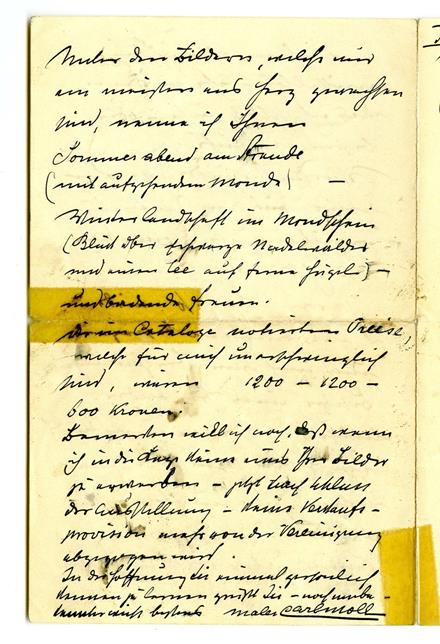 Unter den Bildern, welche mir
am meisten ans Herz gewachsen
sind, nenne ich Ihnen
Sommerabend am Strande
(mit aufgehendem Monde) —
Winterlandschaft im Mondschein
(Blick über schwarze Nadelwälder
und einen See auf ferne Hügel) —
und badende Frauen.
Die im Cataloge notierten Preise,
welche für mich unerschwinglich
sind, waren 1200 – 1200 –
600 Kronen.
Bemerken will ich noch, daß wenn
ich in die Lage käme eines Ihrer Bilder
zu erwerben – jetzt nach Schluss
der Ausstellung – keine Verkaufs-
provision mehr von der Vereinigung
abgezogen wird.
In der Hoffnung Sie einmal persönlich
kennen zu lernen grüßt Sie – noch unbe-
kannter weise bestens Maler Carl Moll